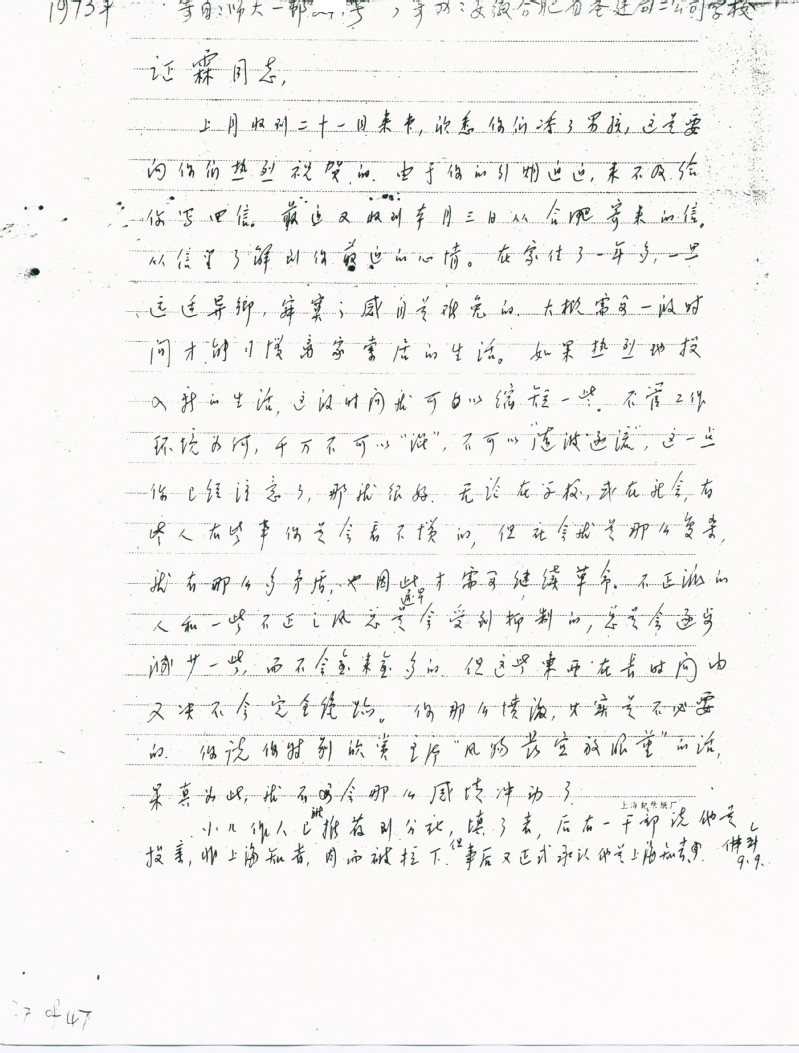 1973年 寄自:师大一村 寄往:安徽合肥省基建局二公司学校
证霖同志,
上月收到二十一日来书,欣悉你们添了男孩,这是要
向你们热烈祝贺的。由于你的引期迫近,来不及给
你写回信。最近又收到本月三日从合肥寄来的信。
从信里了解到你最近的心情。在家住了一年多,一旦
远适异乡,寂寞之感自是难免的。大概需要一段时
间才能习惯离家索居的生活。如果热烈地投
入新的生活,这段时间就可以缩短一些。不管工作
环境为何,千万不可以“混”,不可以“随波逐流”,这一点
你已经注意了,那就很好。无论在学校,或在社会,有
些人有些事你是会看不惯的,但社会就是那么复杂,
就有那么多矛盾,也因此才需要继续革命。不正派的
人和一些不正之风总是会逐早受到抑制的,总是会逐步
减少一些,而不会愈来愈多的。但这些东西在长时间内
又决不会完全绝迹。你那么愤激,其实是不必要
的。你说你特别欣赏主席“风物长宜放眼量”的话,
果真如此,就不会那么感情冲动了。
上海纸品厂
小儿作人已被推荐到公社,填了表,后有一干部说他是
投亲,非上海知青,因而被拉下。但事后又正式承认他是上海知青
9.9.
27 of 47